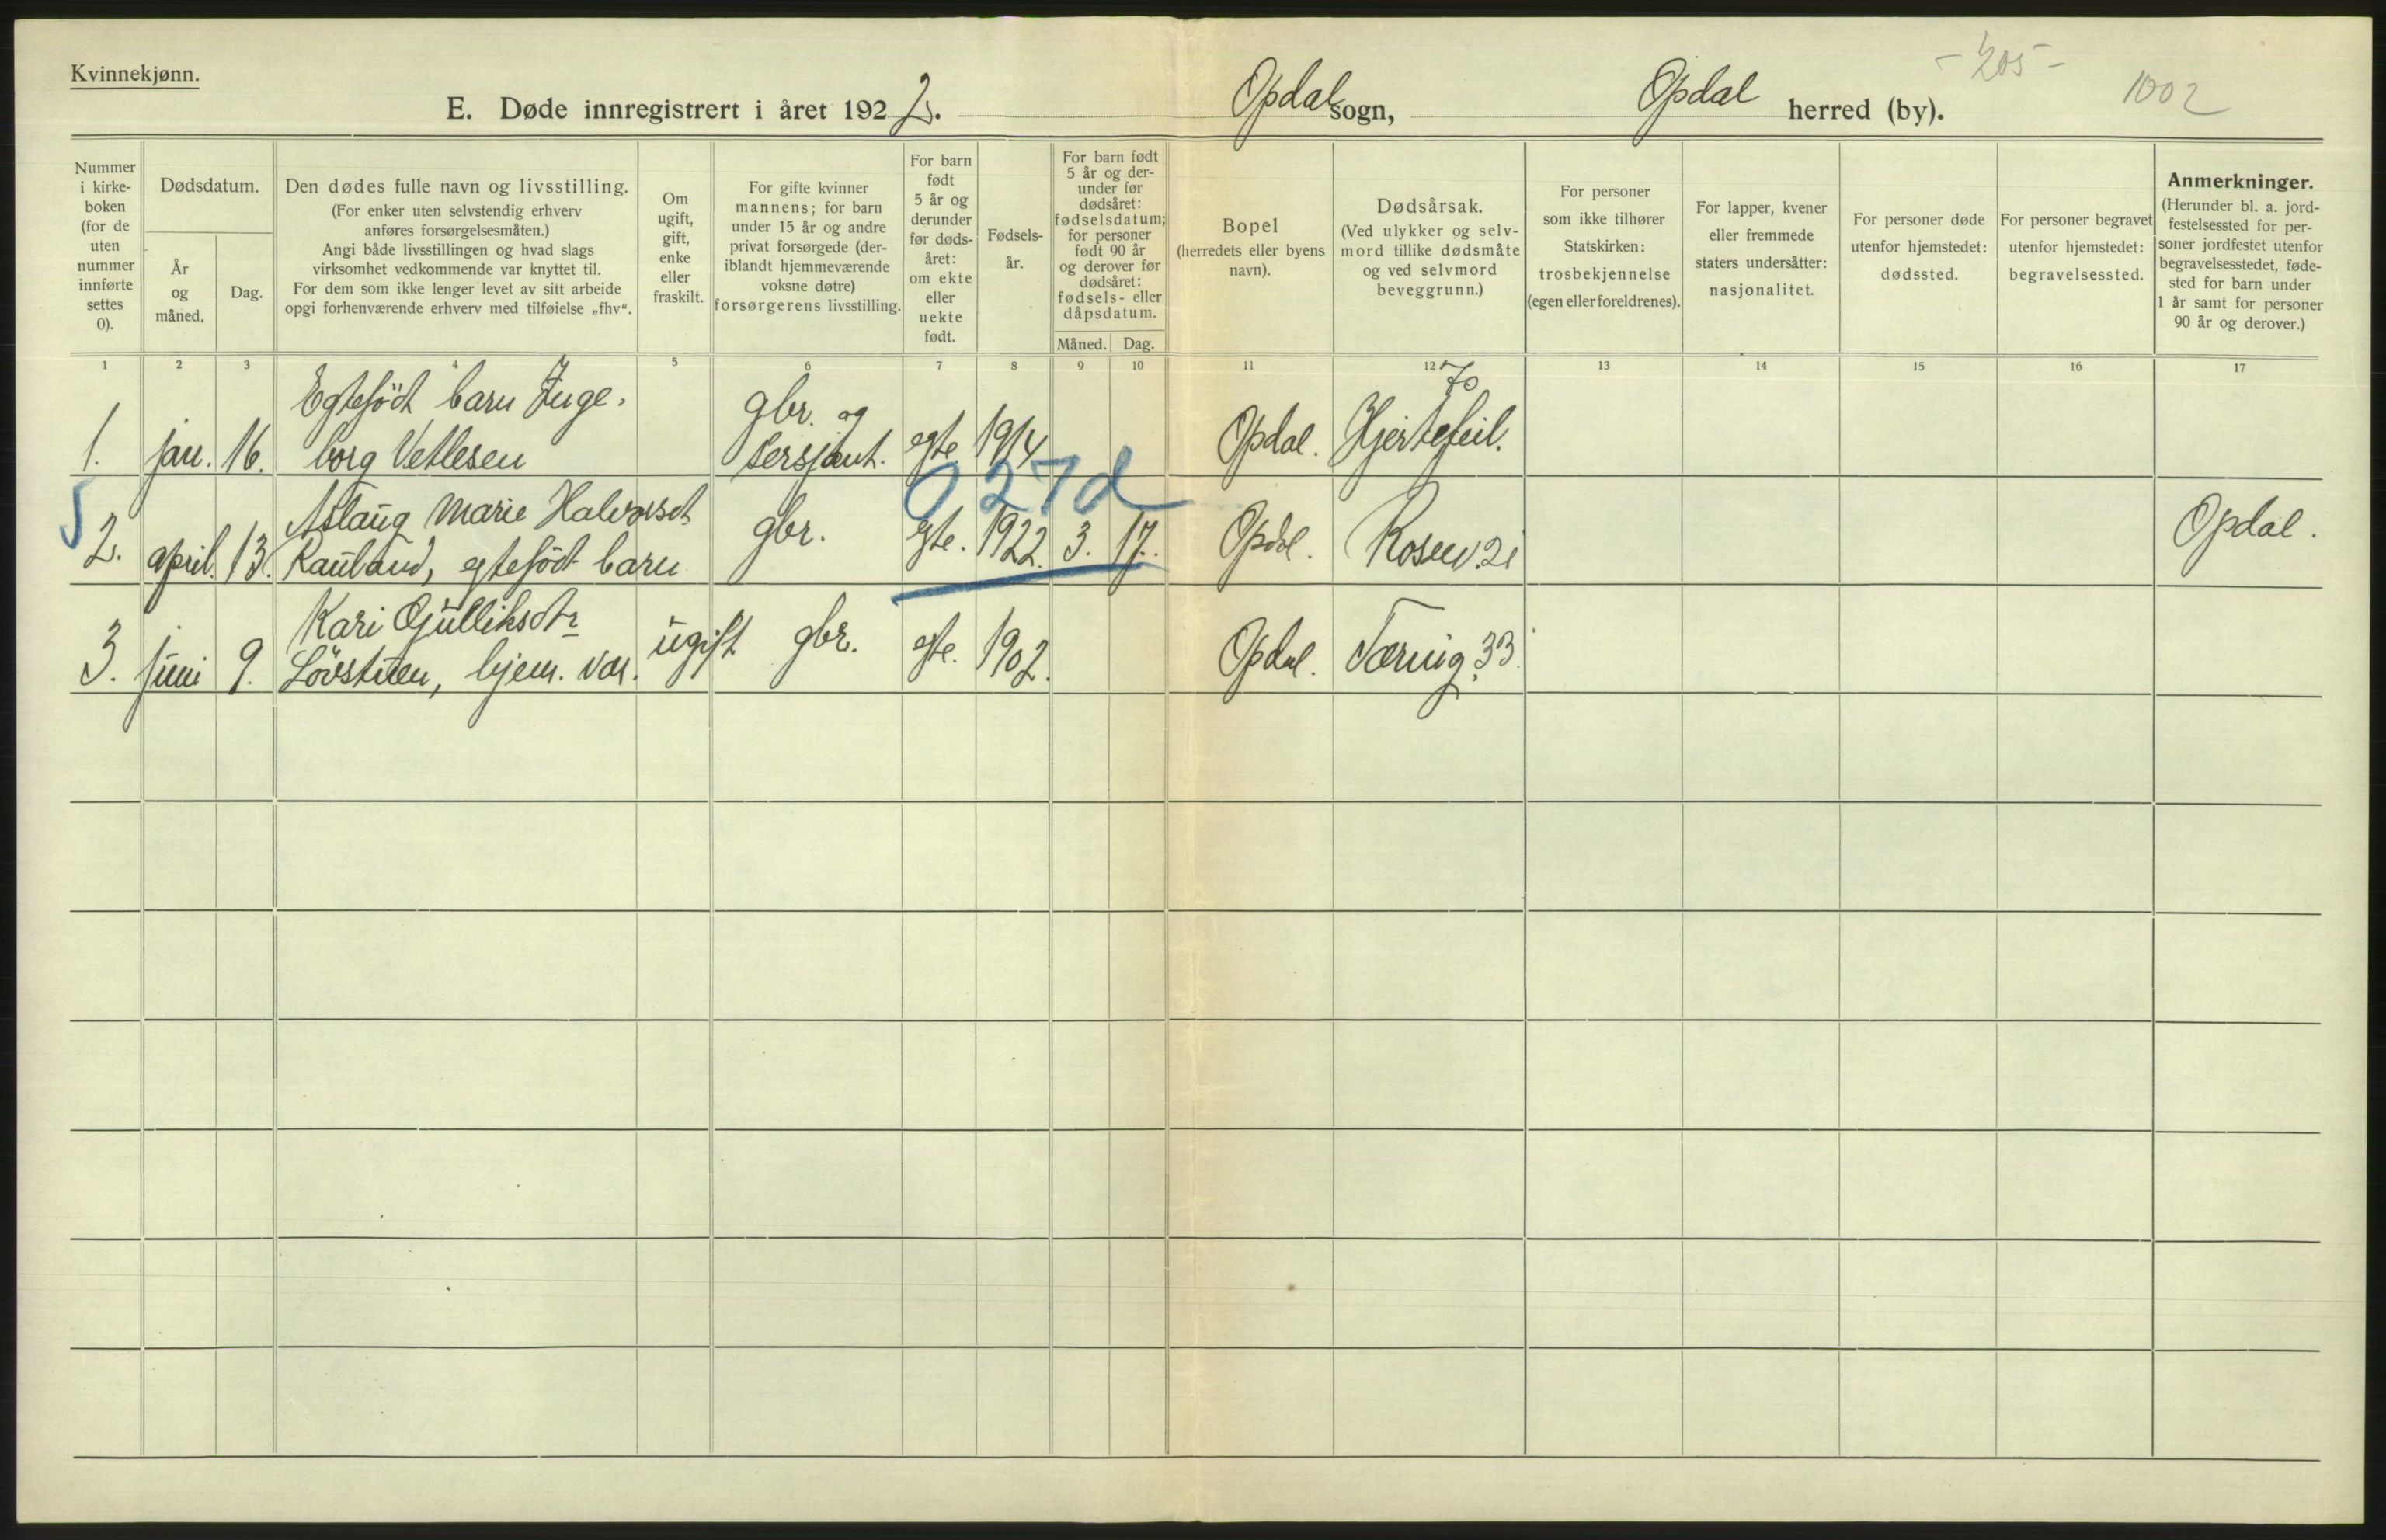 Kvinnekjønn.
- 205 -
1002
E. Døde innregistrert i året 1922. Opdal sogn, Opdal herred (by).
Nummer
i kirke-
boken
(for de
uten
nummer
innførte
settes
0).
Dødsdatum.
År
og
måned.
Dag.
Den dødes fulle navn og livsstilling.
(For enker uten selvstendig erhverv
anføres forsørgelsesmåten.)
Angi både livsstillingen og hvad slags
virksomhet vedkommende var knyttet til.
For dem som ikke lenger levet av sitt arbeide
opgi forhenværende erhverv med tilføielse „fhv“.
Om
ugift,
gift,
enke
eller
fraskilt.
For gifte kvinner
mannens; for barn
under 15 år og andre
privat forsørgede (der-
iblandt hjemmeværende
voksne døtre)
forsørgerens livsstilling.
For barn
født
5 år og
derunder
før døds-
året:
om ekte
eller
uekte
født.
Fødsels-
år.
For barn født
5 år og der-
under før
dødsåret:
fødselsdatum;
for personer
født 90 år
og derover før
dødsåret:
fødsels- eller
dåpsdatum.
Måned.
Dag.
Bopel
(herredets eller byens
navn).
Dødsårsak.
(Ved ulykker og selv-
mord tillike dødsmåte
og ved selvmord
beveggrunn.)
For personer
som ikke tilhører
Statskirken:
trosbekjennelse
(egen eller foreldrenes).
For lapper, kvener
eller fremmede
staters undersåtter:
nasjonalitet.
For personer døde
utenfor hjemstedet:
dødssted.
For personer begravet
utenfor hjemstedet:
begravelsessted.
Anmerkninger.
(Herunder bl. a. jord-
festelsessted for per-
soner jordfestet utenfor
begravelsesstedet, føde-
sted for barn under
1 år samt for personer
90 år og derover.)
1 2 3 4 5 6 7 8 9 10 11 12 13 14 15 16 17
Egtefödt barn Inge- gbr. og 70
1. jan. 16. borg Vetlesen sersjant. egte 1914 Opdal. Hjertefeil.
0 27 d
Aslaug Marie Halvorsdt
2. april. 13. Rauland, egtefödt barn gbr. egte. 1922. 3. 17. Opdal. Rosen. 21 Opdal.
Kari Gulliksdtr
3. juni 9. Lövstuen, hjem. vær. ugift gbr. egte. 1902. Opdal. Tæring. 33